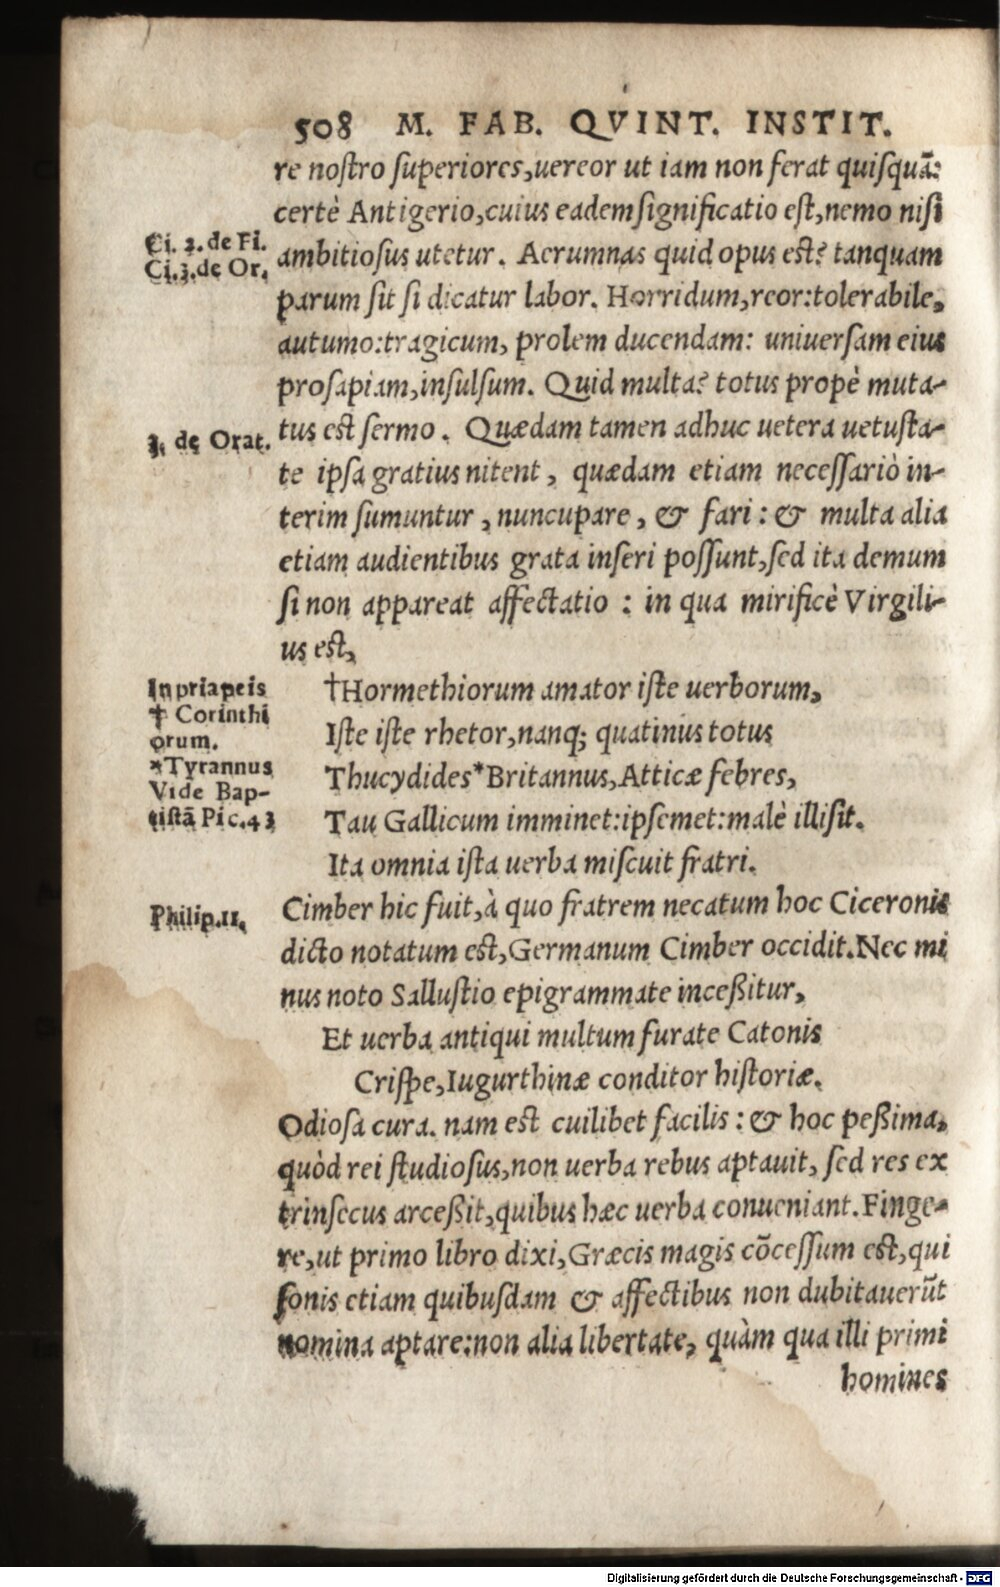 508 M. FAB. QVINT. INSTIT.
re nostro superiores,uereor ut iam non ferat quisquā:
certè Antigerio,cuius eadem significatio est,nemo nisi
Ci. 2. de Fi.
Ci.3.de Or.
ambitiosus utetur. Aerumnas quid opus est? tanquam
parum sit si dicatur labor. Horridum,reor:tolerabile,
autumo:tragicum, prolem ducendam: uniuersam eius
prosapiam,insulsum. Quid multa? totus propè muta-
3. de Orat.
tus est sermo. Quædam tamen adhuc uetera uetusta-
te ipsa gratius nitent, quædam etiam necessariò in-
terim sumuntur, nuncupare, & fari: & multa alia
etiam audientibus grata inseri possunt,sed ita demum
si non appareat affectatio: in qua mirificè Virgili-
us est,
In priapeis
† Corinthi
orum.
*Tyrannus
Vide Bap-
tistā Pic.43
†Hormethiorum amator iste uerborum,
Iste iste rhetor,nanq; quatinus totus
Thucydides*Britannus,Atticæ febres,
Tau Gallicum imminet:ipsemet:malè illisit.
Ita omnia ista uerba miscuit fratri.
Philip.11.
Cimber hic fuit,à quo fratrem necatum hoc Ciceronis
dicto notatum est,Germanum Cimber occidit.Nec mi
nus noto Sallustio epigrammate inceßitur,
Et uerba antiqui multum furate Catonis
Crispe,Iugurthinæ conditor historiæ.
Odiosa cura. nam est cuilibet facilis: & hoc peßima,
quòd rei studiosus,non uerba rebus aptauit, sed res ex
trinsecus arceßit,quibus hæc uerba conueniant.Finge-
re,ut primo libro dixi,Græcis magis cōcessum est,qui
sonis etiam quibusdam & affectibus non dubitauerūt
nomina aptare:non alia libertate, quàm qua illi primi
homines
Digitalisierung gefördert durch die Deutsche Forschungsgemeinschaft - DFG